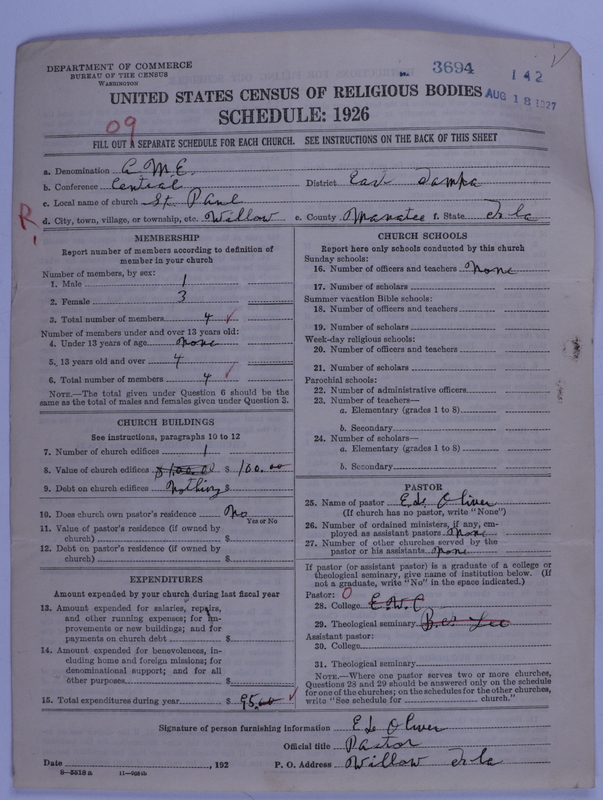 DEPARTMENT OF COMMERCE
BUREAU OF THE CENSUS
WASHINGTON
3694
142
AUG 18 1927
UNITED STATES CENSUS OF RELIGIOUS BODIES
SCHEDULE: 1926
09
FILL OUT A SEPARATE SCHEDULE FOR EACH CHURCH. SEE INSTRUCTIONS ON THE BACK OF THIS SHEET
a. Denomination A.M.E.
b. Conference Central District East Tampa
c. Local name of church St. Paul
R, d. City, town, village, or township, etc. Willow e. County Manatee f. State Fla
MEMBERSHIP
Report number of members according to definition of
member in your church
Number of members, by sex:
1. Male 1
2. Female 3
3. Total number of members 4
Number of members under and over 13 years old:
4. Under 13 years of age none
5. 13 years old and over 4
6. Total number of members 4
NOTE.—The total given under Question 6 should be the
same as the total of males and females given under Question 3.
CHURCH BUILDINGS
See instructions, paragraphs 10 to 12
7. Number of church edifices 1
8. Value of church edifices $100.00 $ 100.00
9. Debt on church edifices Nothing $
10. Does church own pastor's residence No
Yes or No
11. Value of pastor's residence (if owned by
church) $
12. Debt on pastor's residence (if owned by
church) $
EXPENDITURES
Amount expended by your church during last fiscal year
13. Amount expended for salaries, repairs,
and other running expenses; for im-
provements or new buildings; and for
payments on church debt $
14. Amount expended for benevolences, in-
cluding home and foreign missions; for
denominational support; and for all
other purposes $
15. Total expenditures during year $ 95.00
CHURCH SCHOOLS
Report here only schools conducted by this church
Sunday schools:
16. Number of officers and teachers none
17. Number of scholars
Summer vacation Bible schools:
18. Number of officers and teachers
19. Number of scholars
Week-day religious schools:
20. Number of officers and teachers
21. Number of scholars
Parochial schools:
22. Number of administrative officers
23. Number of teachers—
a. Elementary (grades 1 to 8)
b. Secondary
24. Number of scholars—
a. Elementary (grades 1 to 8)
b. Secondary
PASTOR
25. Name of pastor E de Oliver
(If church has no pastor, write "None")
26. Number of ordained ministers, if any, em-
ployed as assistant pastors none
27. Number of other churches served by the
pastor or his assistants none
If pastor (or assistant pastor) is a graduate of a college or
theological seminary, give name of institution below. (If
not a graduate, write "No" in the space indicated.)
Pastor: 0
28. College E.W.C
29. Theological seminary Lee
Assistant pastor:
30. College
31. Theological seminary
NOTE.—Where one pastor serves two or more churches,
Questions 28 and 29 should be answered only on the schedule
for one of the churches; on the schedules for the other churches,
write "See schedule for church."
Signature of person furnishing information E de Oliver
Official title Pastor
Date , 192 P. O. Address Willow Fla
8-5518 a